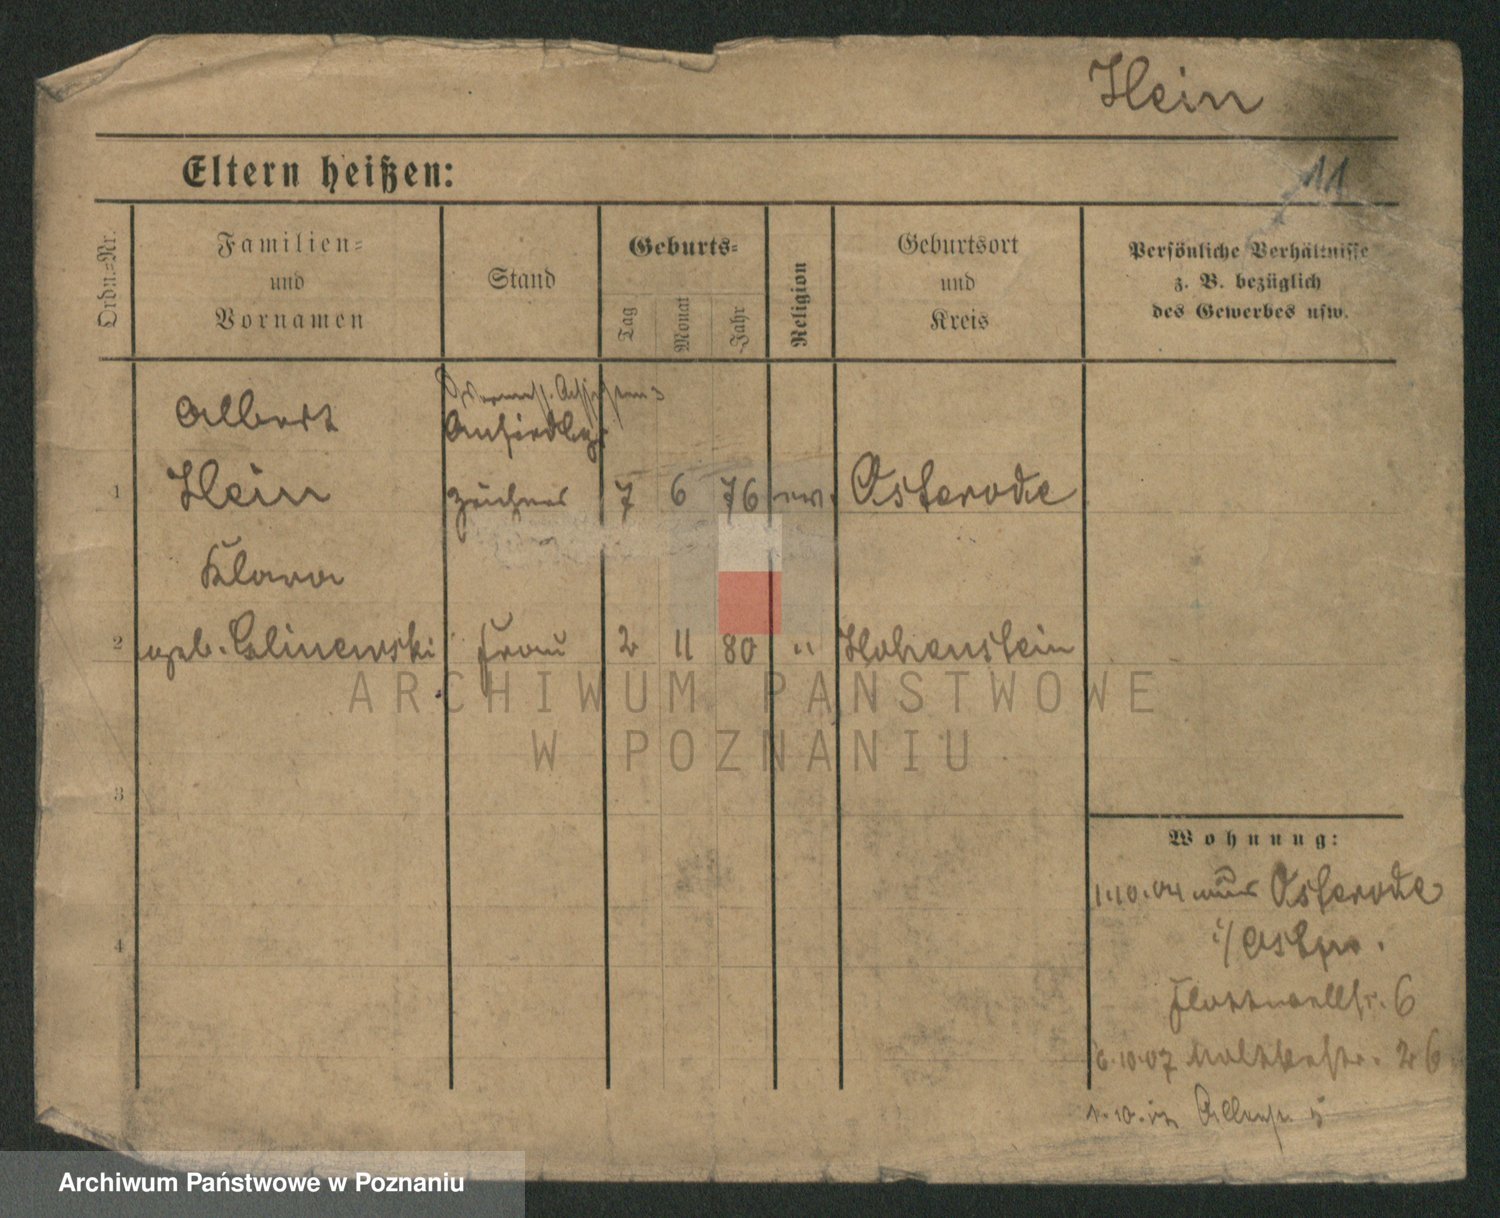 Hein
11
Eltern heißen:
Ordn.-Nr.
Familien-
und
Vornamen
Stand
Geburts-
Tag
Monat
Jahr
Religion
Geburtsort
und
Kreis
Persönliche Verhältnisse
z. B. bezüglich
des Gewerbes usw.
Albert
Ansiedlgs
1 Hein zeichner 7 6 76 ev. Osterode
Klara
2 geb. Glinewski Frau 2 11 80 " Hohenstein
ARCHIWUM PAŃSTWOWE
W POZNANIU
3
Wohnung:
1.10.04 aus Osterode
i/Ostpr.
4
Flottwellstr. 6
6.10.07 Moltkestr. 26
Archiwum Państwowe w Poznaniu